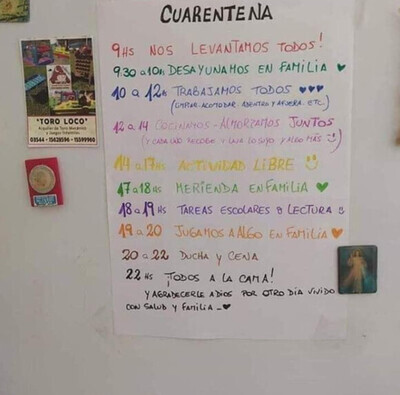 CUARENTENA
9HS NOS LEVANTAMOS TODOS!
9.30 a 10hs DESAYUNAMOS EN FAMILIA ♥
10 a 12hs TRABAJAMOS TODOS ♥♥♥
(LIMPIAR-ACOMODAR ADENTRO Y AFUERA. ETC.)
12 a 14 COCINAMOS-ALMORZAMOS JUNTOS
(Y CADA UNO RECOGE Y LAVA LO SUYO Y ALGO MÁS)
14 a 17HS ACTIVIDAD LIBRE
17 a 18HS MERIENDA EN FAMILIA ♥
18 a 19HS TAREAS ESCOLARES & LECTURA
19 a 20 JUGAMOS A ALGO EN FAMILIA ♥
20 a 22 DUCHA Y CENA
22HS ¡TODOS A LA CAMA!
Y AGRADECERLE A DIOS POR OTRO DÍA VIVIDO
CON SALUD Y FAMILIA_♥
"TORO LOCO"
Alquiler de Toro Mecánico
y Juegos Infantiles
03544 - 15628596 - 15599960